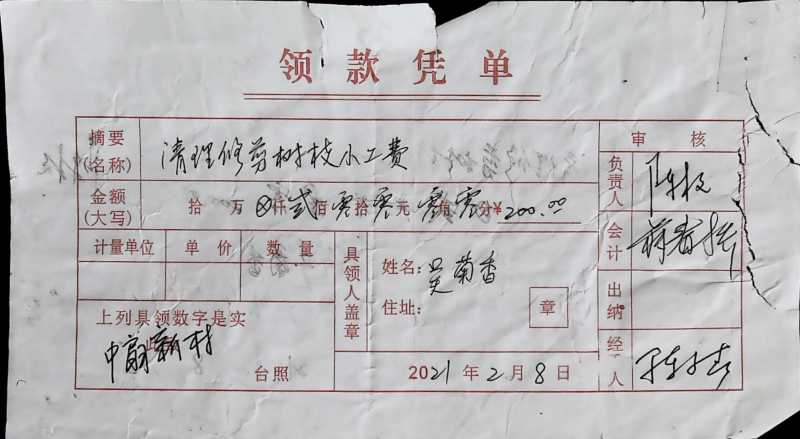 领款凭单
摘要(名称) 清理修剪树枝小工费
审核
金额(大写) 拾万⊗仟弍佰零拾零元零角零分¥200.00
负责人
计量单位 单价 数量
具领人盖章
姓名：吴菊香
会计
住址： 章
出纳
上列具领数字是实
中新村
台照
2021年2月8日
经 人